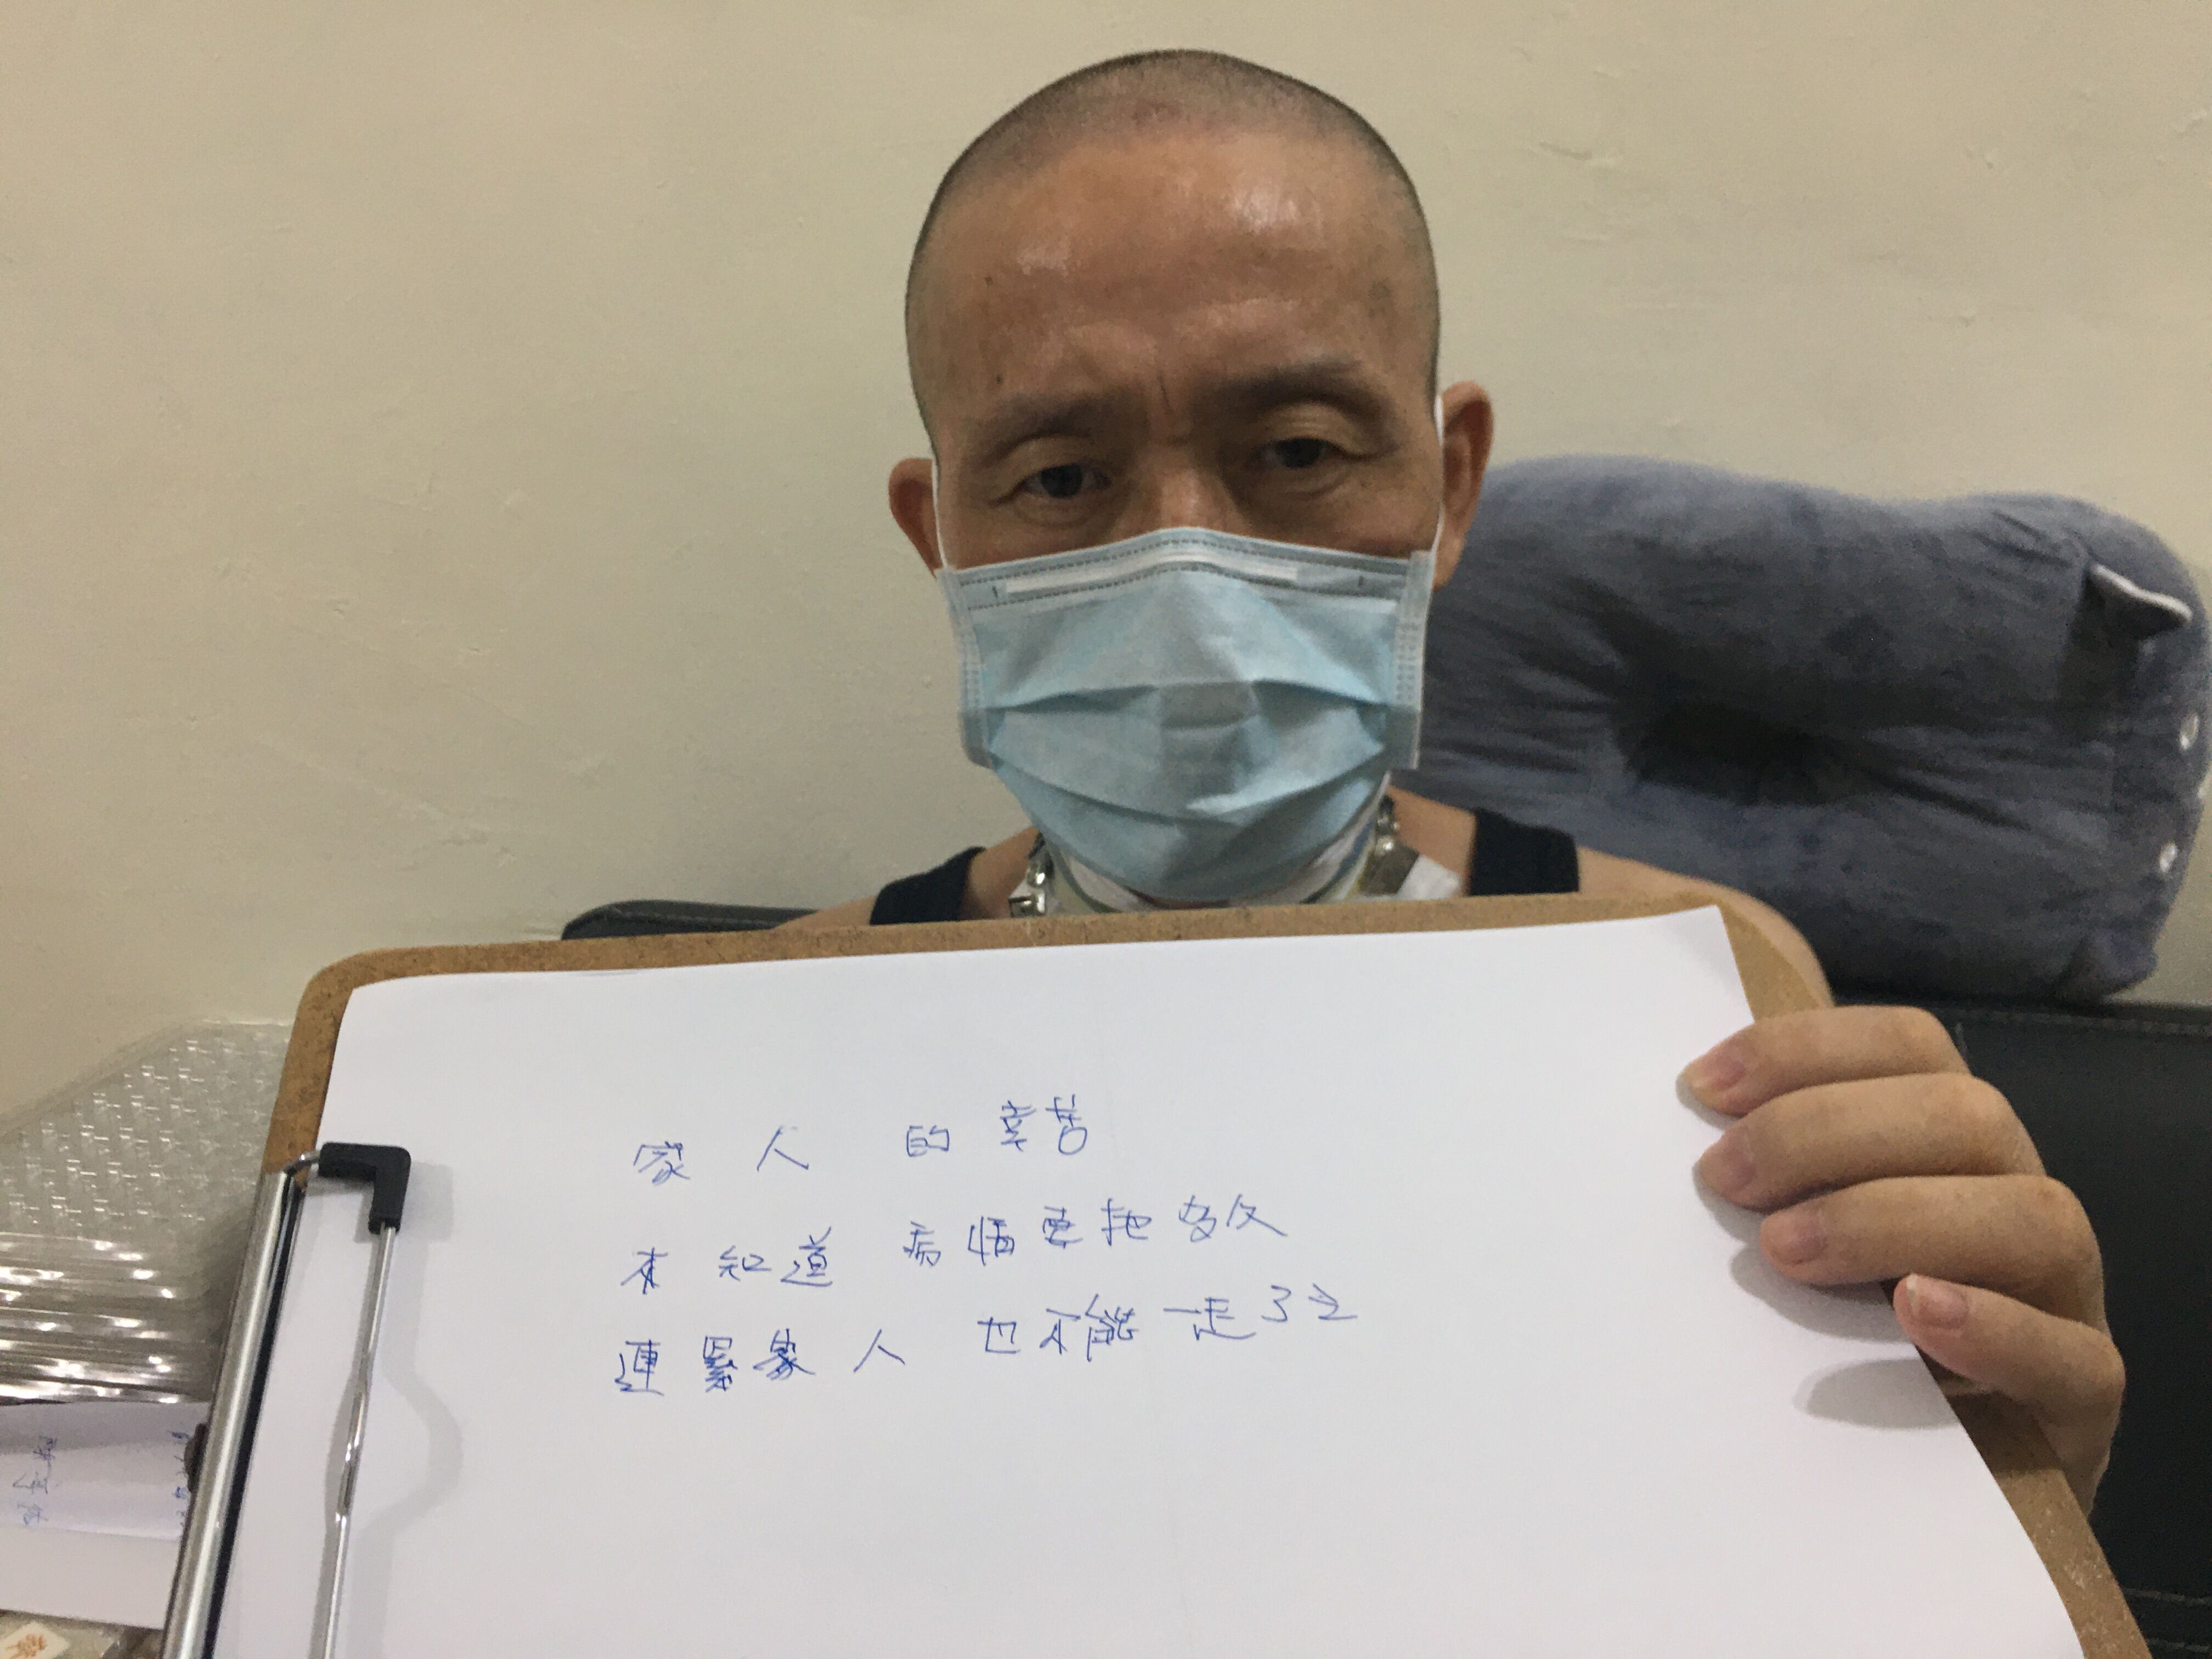 家人的辛苦
不知道病情要拖多久
連累家人也不能一走了之